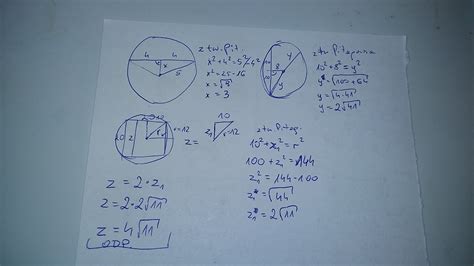 4 4
x
5
z tw. Pit.
x²+4²=5² /-4²
x²=25-16
x=√9
x=3
8
y
y
z tw Pitagorasa
10²+8²=y²
y=√100+64
y=√4·41
y=2√41
10
z
r=12
z=
10
z₁
r=12
z tw Pitag.
10²+z₁²=r²
100+z₁²=144
z₁²=144-100
z₁=√44
z₁=2√11
z=2·z₁
z=2·2√11
z=4√11
ODP